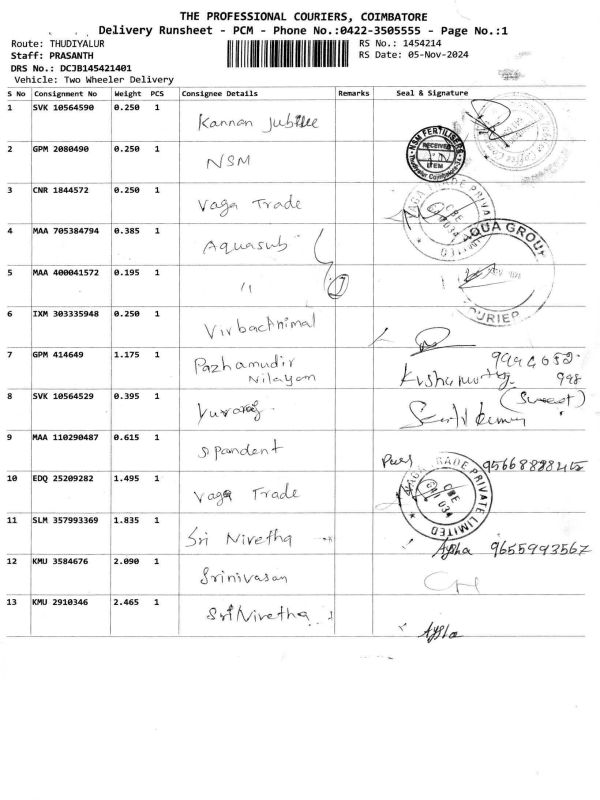 THE PROFESSIONAL COURIERS, COIMBATORE
Delivery Runsheet - PCM - Phone No.:0422-3505555 - Page No.:1
Route: THUDIYALUR RS No.: 1454214
Staff: PRASANTH RS Date: 05-Nov-2024
DRS No.: DCJB145421401
Vehicle: Two Wheeler Delivery
S No Consignment No Weight PCS Consignee Details Remarks Seal & Signature
1 SVK 10564590 0.250 1 Kannan Jubilee
2 GPM 2080490 0.250 1 NSM
NSM FERTILISERS RECEIVED ITEM Thudiyalur Coimbatore
3 CNR 1844572 0.250 1 Vaga Trade
VAGA TRADE PRIVA CBE 034
4 MAA 705384794 0.385 1 Aquasub
AQUA GROUP
5 MAA 400041572 0.195 1 "
COURIER
6 IXM 303335948 0.250 1 Virbac Animal
7 GPM 414649 1.175 1 Pazhamudir
Nilayam
998
8 SVK 10564529 0.395 1 Yuvaraj
(Sweet)
9 MAA 110290487 0.615 1 Sipandent
10 EDQ 25209282 1.495 1 Vaga Trade
VAGA TRADE PRIVATE LIMITED CBE 034
11 SLM 357993369 1.835 1 Sri Nivetha
Aysha 9655993567
12 KMU 3584676 2.090 1 Srinivasan
13 KMU 2910346 2.465 1 Sri Nivetha
Aysha